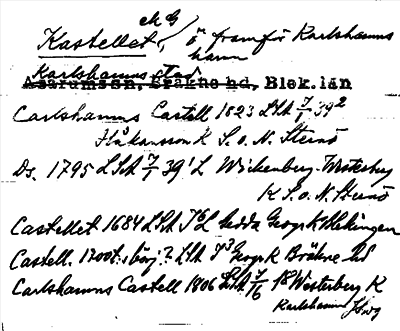 ck G
Kastellet, ö framför Karlshamns
hamn
Karlshamns stad
Asarumssn, Bräkne hd, Blek.län
Carlshamns Castell 1823 LSA 7/1 39²
Håkansson K S. o. N. Sternö
Ds. 1795 LSA 7/1 39¹ L Wickenberg-Westerberg
K S. o. N. Sternö
Castellet 1684 LSA T⁶L Geogr K Blekingen
Castell. 1700t.s börj.? LSA T³ Geogr K Bräkne hd
Carlshamns Castell 1806 LSA 7/16 Westerberg K
Karlshamn